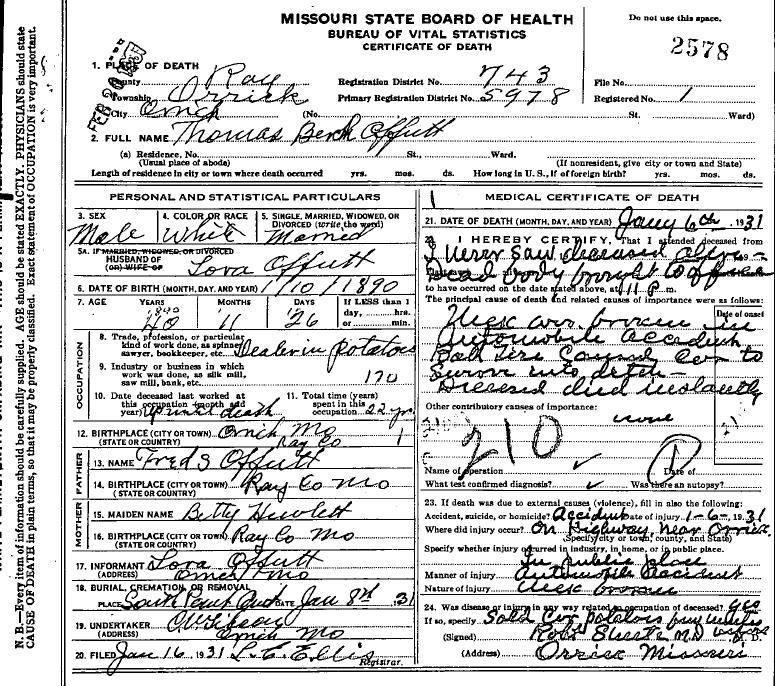 MISSOURI STATE BOARD OF HEALTH
BUREAU OF VITAL STATISTICS
CERTIFICATE OF DEATH
Do not use this space.
2578
1. PLACE OF DEATH
County Ray Registration District No. 743 File No.
Township Orrick Primary Registration District No. 5978 Registered No. 1
City Orrick (No. St. Ward)
2. FULL NAME Thomas Offutt
(a) Residence, No. St., Ward.
(Usual place of abode) (If nonresident, give city or town and State)
Length of residence in city or town where death occurred yrs. mos. ds. How long in U. S., if of foreign birth? yrs. mos. ds.
PERSONAL AND STATISTICAL PARTICULARS
3. SEX Male
4. COLOR OR RACE White
5. SINGLE, MARRIED, WIDOWED, OR DIVORCED (write the word) Married
5A. IF MARRIED, WIDOWED, OR DIVORCED
HUSBAND OF
(OR) WIFE OF Lora Offutt
6. DATE OF BIRTH (MONTH, DAY, AND YEAR) 1/10/1890
7. AGE YEARS MONTHS DAYS If LESS than 1
day, hrs.
or min.
1890
40 11 26
OCCUPATION
8. Trade, profession, or particular
kind of work done, as spinner,
sawyer, bookkeeper, etc. Dealer in Potatoes
9. Industry or business in which
work was done, as silk mill,
saw mill, bank, etc. 170
10. Date deceased last worked at
this occupation (month and
year) until death
11. Total time (years)
spent in this
occupation 22 yrs
12. BIRTHPLACE (CITY OR TOWN) Orrick Mo
(STATE OR COUNTRY) Ray Co 1
FATHER
13. NAME Fred S Offutt
14. BIRTHPLACE (CITY OR TOWN) Ray Co Mo
(STATE OR COUNTRY)
MOTHER
15. MAIDEN NAME Betty Hewlett
16. BIRTHPLACE (CITY OR TOWN) Ray Co Mo
(STATE OR COUNTRY)
17. INFORMANT Lora Offutt
(ADDRESS) Orrick Mo
18. BURIAL, CREMATION, OR REMOVAL
PLACE South Point DATE Jan 8th, 31
19. UNDERTAKER
(ADDRESS) Orrick Mo
20. FILED Jan 16, 1931 L. E. Ellis
Registrar.
MEDICAL CERTIFICATE OF DEATH
21. DATE OF DEATH (MONTH, DAY, AND YEAR) Jany 6th, 1931
22. I HEREBY CERTIFY, That I attended deceased from
I never saw deceased alive -
Dead body brought to office
to have occurred on the date stated above, at 11 P. m.
The principal cause of death and related causes of importance were as follows:
Date of onset
Neck was broken in
Automobile accident
Bad tire caused car to
swerve into ditch -
Deceased died instantly
Other contributory causes of importance:
none
210
Name of operation Date of
What test confirmed diagnosis? Was there an autopsy?
23. If death was due to external causes (violence), fill in also the following:
Accident, suicide, or homicide? Accident Date of injury 1-6-, 1931
Where did injury occur? On Highway, near Orrick
(Specify city or town, county, and State)
Specify whether injury occurred in industry, in home, or in public place.
In public place
Manner of injury Automobile accident
Nature of injury Neck broken
24. Was disease or injury in any way related to occupation of deceased? yes
If so, specify Sold potatoes
(Signed) M. D.
(Address) Orrick Missouri
N. B.—Every item of information should be carefully supplied. AGE should be stated EXACTLY. PHYSICIANS should state
CAUSE OF DEATH in plain terms, so that it may be properly classified. Exact statement of OCCUPATION is very important.